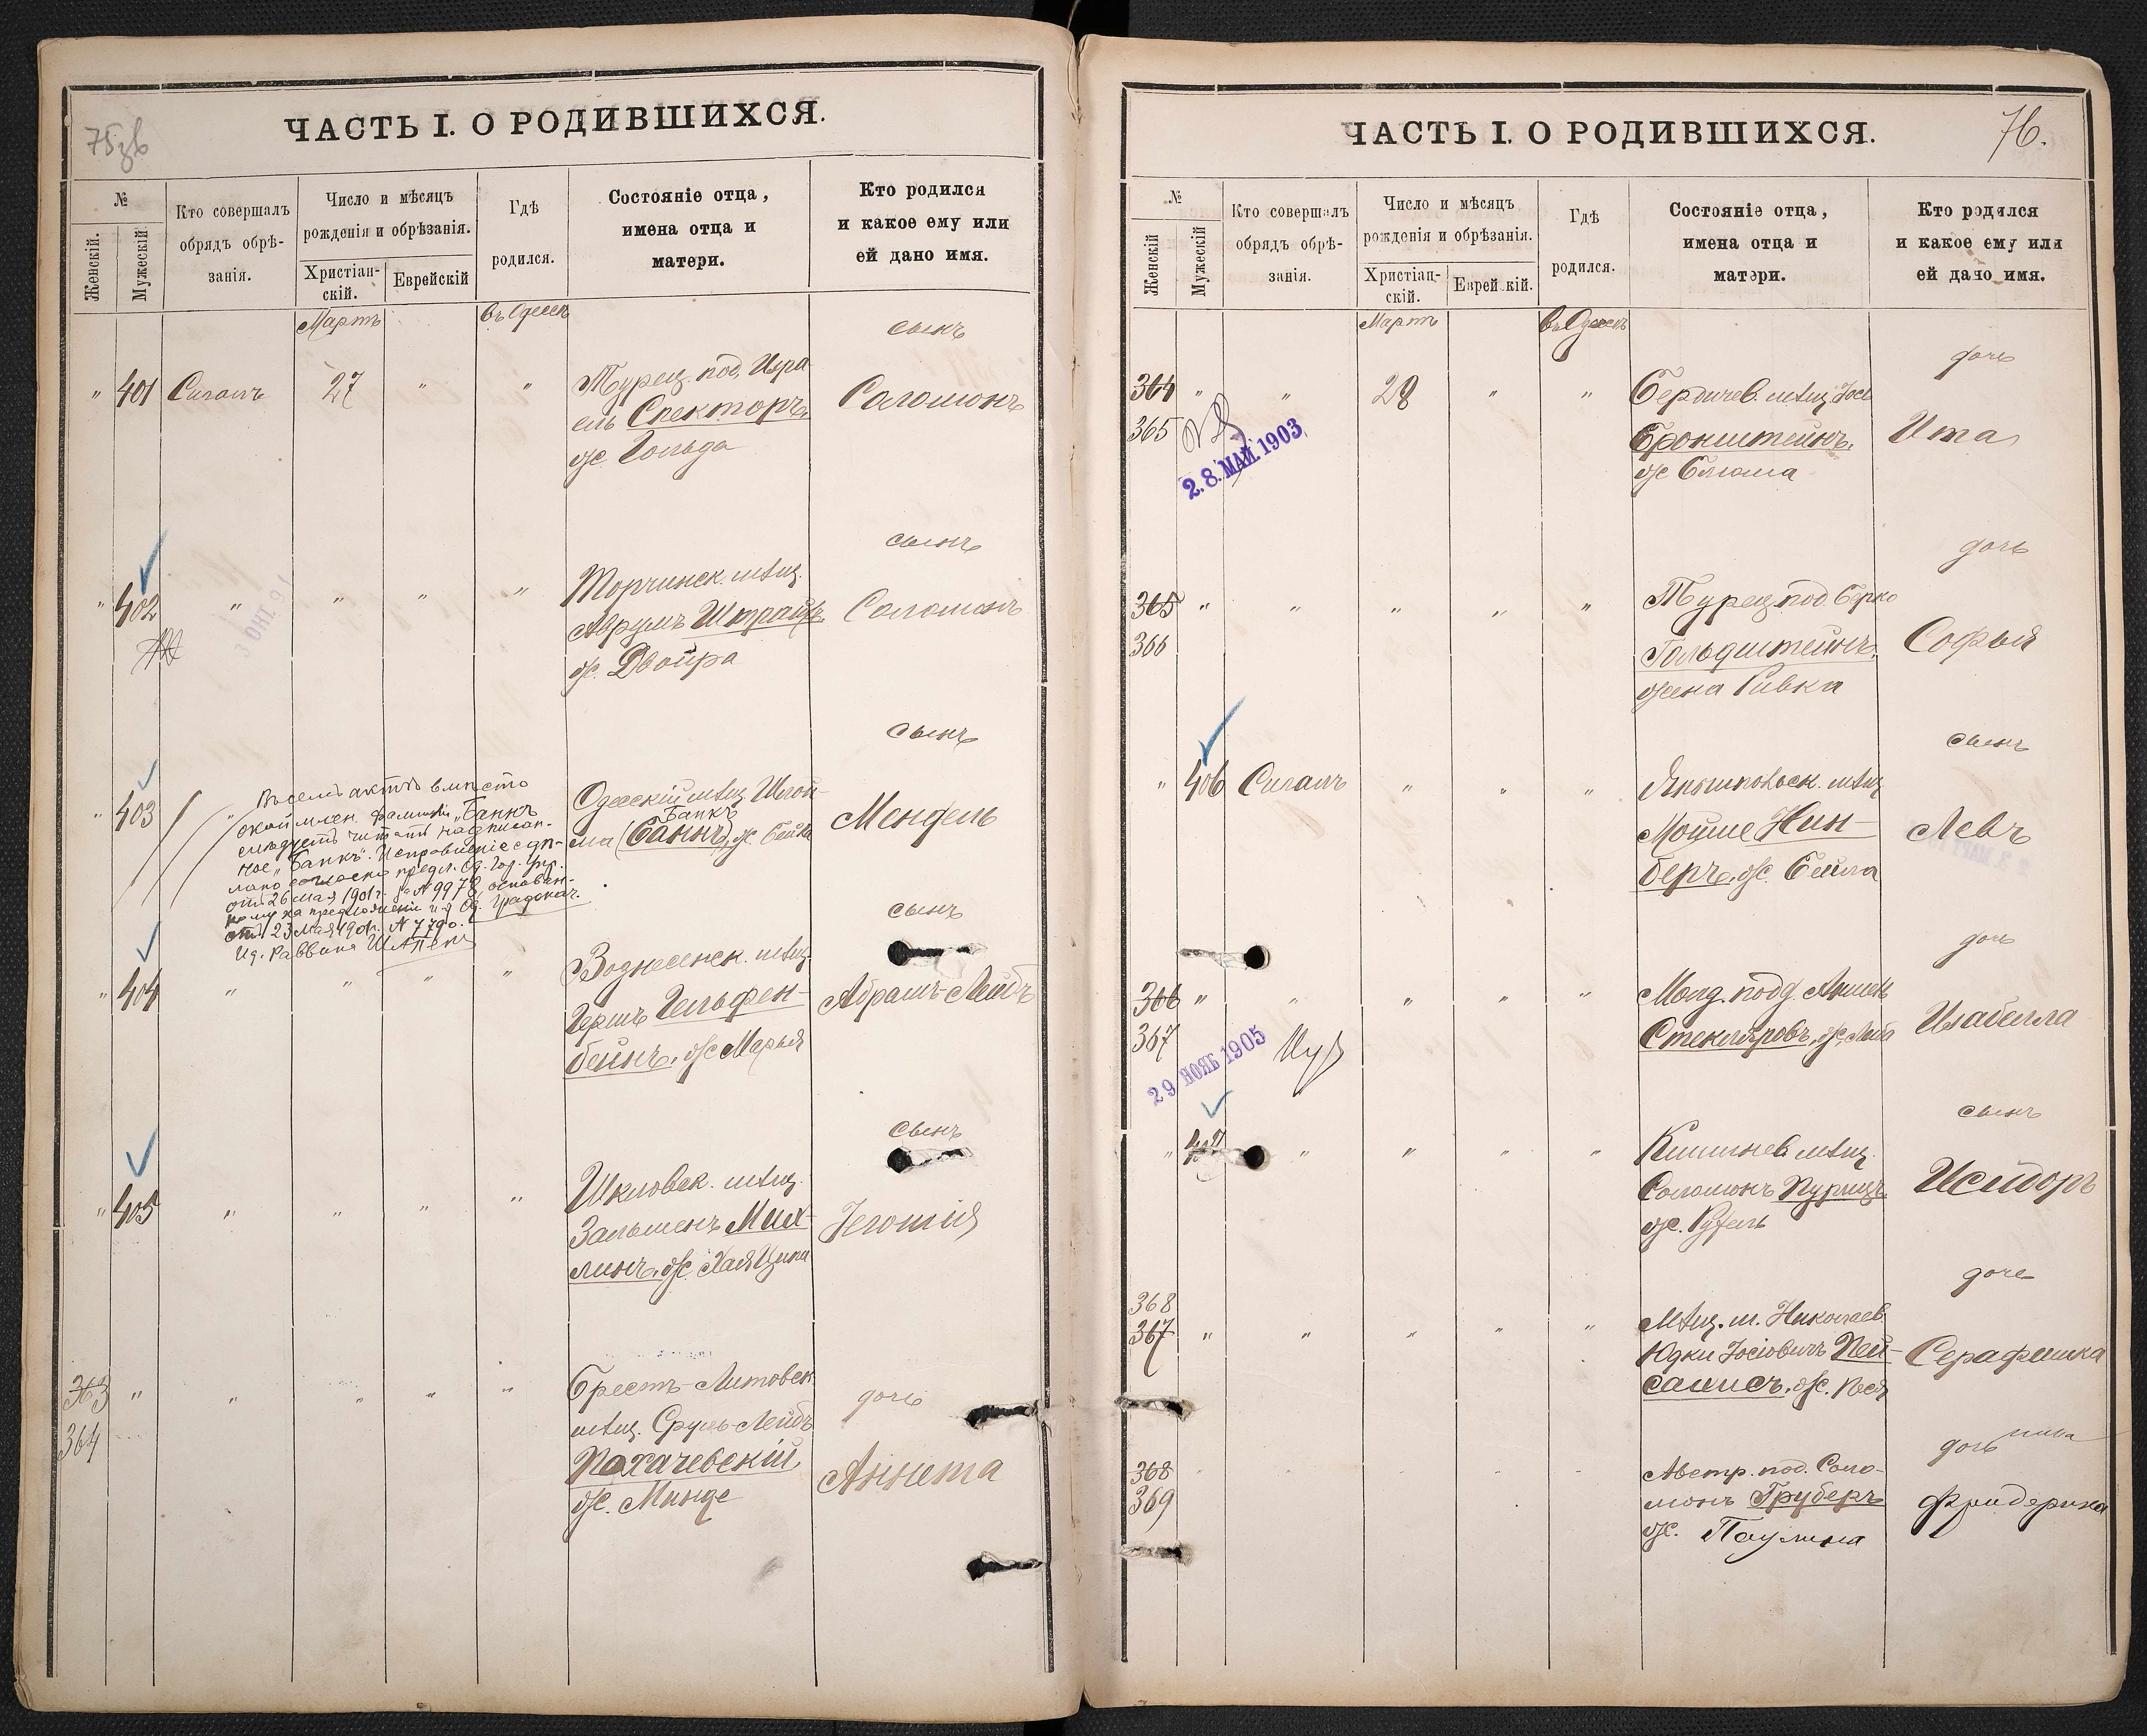 75зв
ЧАСТЬ I. О РОДИВШИХСЯ.
№
Женскій.
Мужескій
Кто совершалъ
обрядъ обрѣ-
занія.
Число и мѣсяцъ
рожденія и обрѣзанія.
Христіан-
скій.
Еврейскій
Гдѣ
родился.
Состояніе отца,
имена отца и
матери.
Кто родился
и какое ему или
ей дано имя.
Мартъ
въ Одессѣ
сынъ
" 401 Сигалъ 27 " "
Турец. под. Изра-
ель Спекторъ,
ж. Гольда
Соломонъ
сынъ
" 402 " " " "
Торчинск. мѣщ.
Аврумъ Штрайхъ,
ж. Двойра
Соломонъ
сынъ
" 403 "
Въ семъ актѣ вмѣсто
фамиліи „Банкъ
слѣдуетъ читать надписан-
ное „Банкъ". Исправленіе сдѣ-
лано согласно предл. Од. Гор. Упр.
отъ 26 мая 1901 г. за № 9978, основан-
ному на предложеніи г-а Од. Градонач.
отъ 23 мая 1901 г. № 7790.
И.д. Раввина
Одесскій мѣщ. Шлой-
Банкъ
ма (Банкъ), ж. Бейла
Мендель
сынъ
" 404 " " " "
Вознесенск. мѣщ.
Гершъ Гельфен-
бейнъ, ж. Марья
Абрамъ-Лейбъ
сынъ
" 405 " " " "
Шкловск. мѣщ.
Зальменъ Мих-
линъ, ж. Хася Ципа
Іегошія
363 " " " " "
364
Брестъ-Литовск.
мѣщ. Сруль-Лейбъ
Похачевскій,
ж. Минде
дочь
Аннета
76.
ЧАСТЬ I. О РОДИВШИХСЯ.
№
Женскій
Мужескій
Кто совершалъ
обрядъ обрѣ-
занія.
Число и мѣсяцъ
рожденія и обрѣзанія.
Христіан-
скій.
Еврей кій.
Гдѣ
родился.
Состояніе отца,
имена отца и
матери.
Кто родился
и какое ему или
ей дано имя.
Мартъ
въ Одессѣ
дочь
364 " " 28 " "
365
2.8. МАЙ. 1903
Бердичев. мѣщ. Іось
Бронштейнъ,
ж. Блюма
Ита
дочь
365 " " " " "
366
Турец. под. Берко
Гольдштейнъ,
жена Ривка
Софья
сынъ
" 406 Сигалъ " " "
Янышпольск. мѣщ.
Мойше Нин-
беръ, ж. Бейла
Левъ
дочь
366 " " " " "
367
29 НОЯБ 1905
Молд. подд.
Стекляровъ, ж. Люба
Изабелла
сынъ
" 407 " " " "
Кишинев. мѣщ.
Соломонъ Пурицъ,
ж. Рухель
Исидоръ
дочь
368
367 " " " " "
Мѣщ. м. Николаев
Юдки Іосіовичъ Пей-
сахисъ, ж. Песя
Серафимка
дочь
368
369
Австр. под. Соло-
монъ Груберъ
ж. Паулина
Фридерика